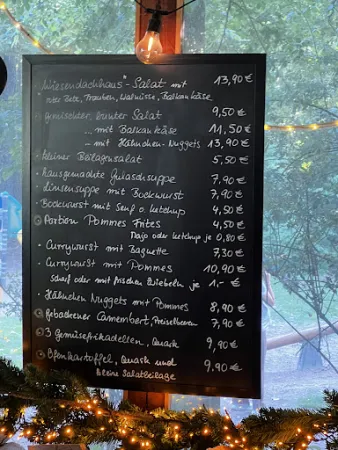 "Wiesendachhaus"-Salat mit 13,90 €
rote Bete, Trauben, Walnüsse, Balkankäse
gemischter, bunter Salat 9,50 €
... mit Balkankäse 11,50 €
- mit Hähnchen-Nuggets 13,90 €
• kleiner Beilagensalat 5,50 €
• hausgemachte Gulaschsuppe 7,90 €
• Linsensuppe mit Bockwurst 7,90 €
• Bockwurst mit Senf o. ketchup 4,50 €
• Portion Pommes Frites 4,50 €
Majo oder ketchup je 0,80 €
• Currywurst mit Baguette 7,30 €
• Currywurst mit Pommes 10,90 €
scharf oder mit frischen Zwiebeln je 1,- €
• Hähnchen Nuggets mit Pommes 8,90 €
• gebackener Camembert, Preiselbeeren 7,90 €
• 3 Gemüsefrikadellen, Quark 9,90 €
• Ofenkartoffel, Quark und 9,90 €
kleine Salatbeilage